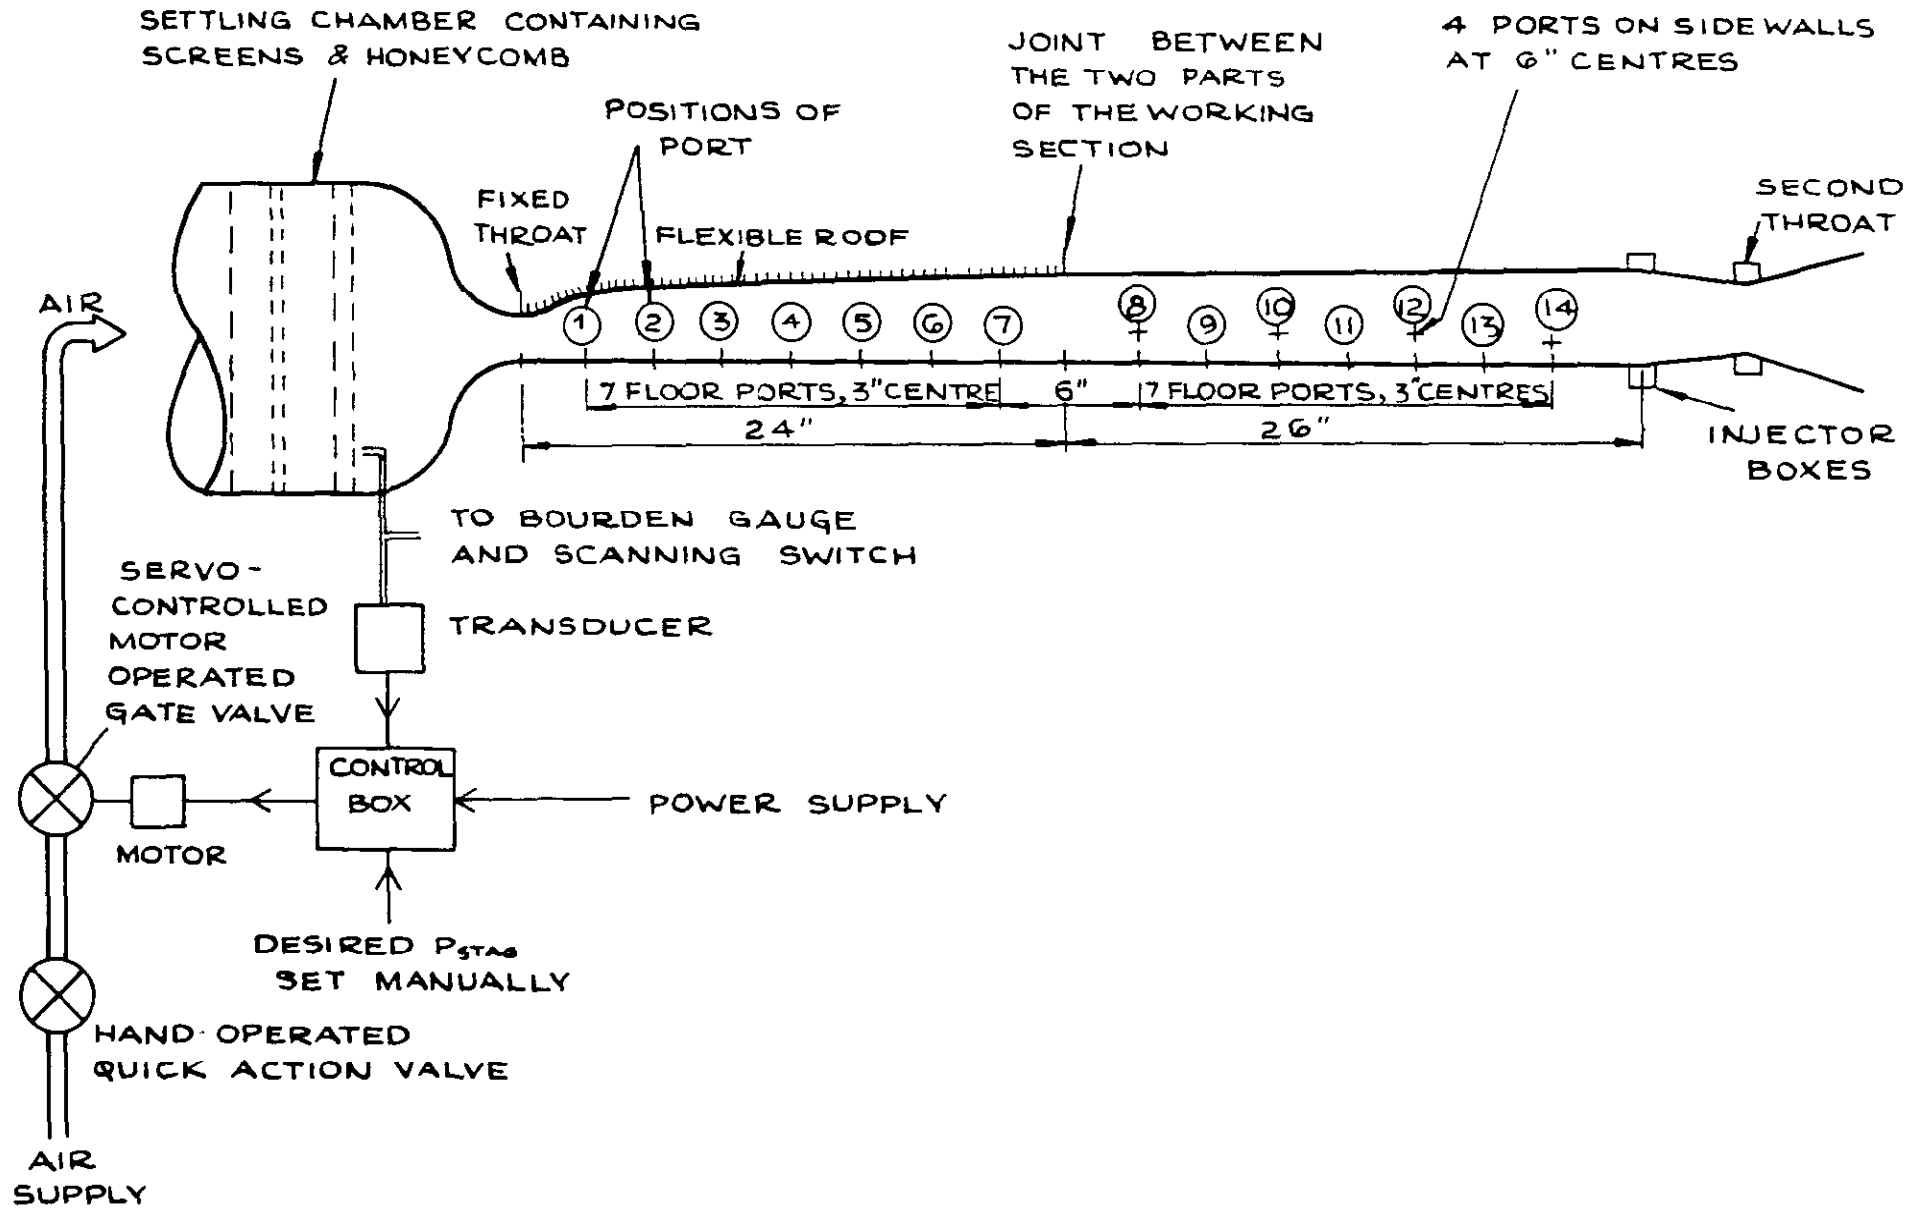 SETTLING CHAMBER CONTAINING
SCREENS & HONEYCOMB
POSITIONS OF
PORT
JOINT BETWEEN
THE TWO PARTS
OF THE WORKING
SECTION
4 PORTS ON SIDE WALLS
AT 6" CENTRES
FIXED
THROAT
FLEXIBLE ROOF
SECOND
THROAT
AIR
1
2
3
4
5
6
7
8
9
10
11
12
13
14
7 FLOOR PORTS, 3" CENTRE
6"
7 FLOOR PORTS, 3" CENTRES
24"
26"
INJECTOR
BOXES
TO BOURDEN GAUGE
AND SCANNING SWITCH
SERVO-
CONTROLLED
MOTOR
OPERATED
GATE VALVE
TRANSDUCER
CONTROL
BOX
POWER SUPPLY
MOTOR
DESIRED PSTAG
SET MANUALLY
HAND-OPERATED
QUICK ACTION VALVE
AIR
SUPPLY